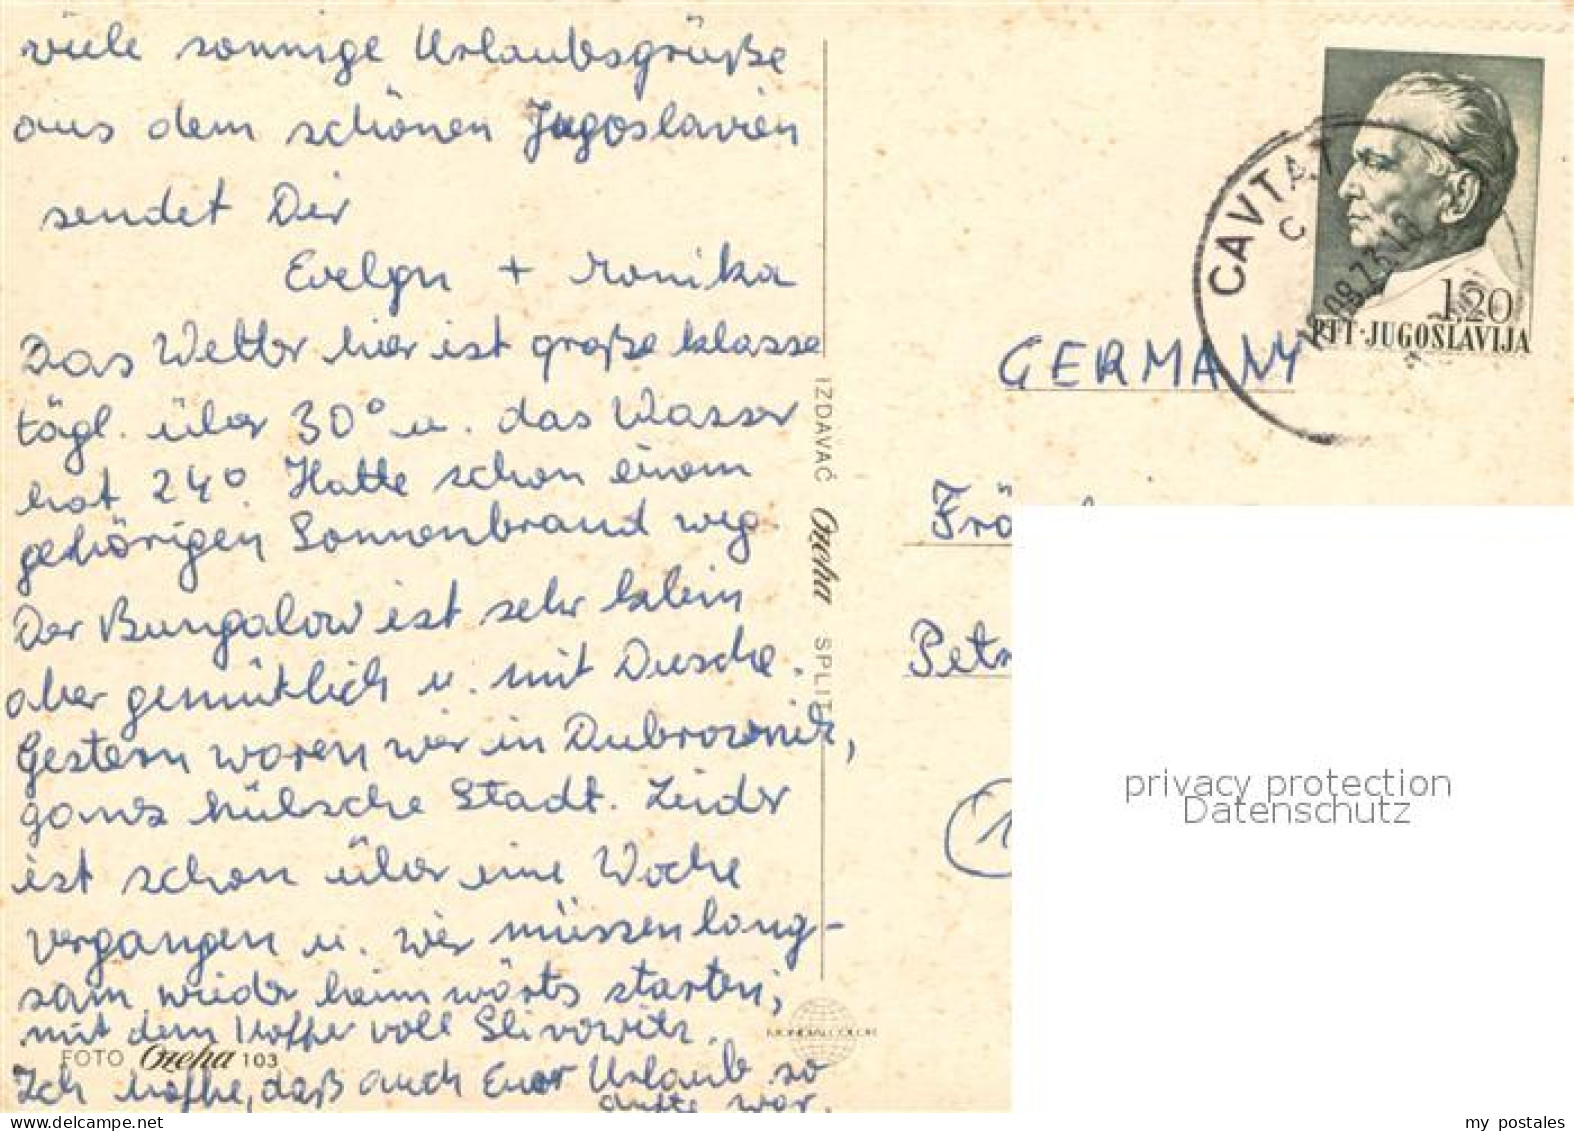 viele sonnige Urlaubsgrüße
aus dem schönen Jugoslavien
sendet Dir
Evelyn + Monika
Das Wetter hier ist große klasse
tägl. über 30° u. das Wasser
hat 24° Hatte schon einen
gehörigen Sonnenbrand weg.
Der Bungalow ist sehr klein
aber gemütlich u. mit Dusche.
Gestern waren wir in Dubrownik,
ganz hübsche Stadt. Leider
ist schon über eine Woche
vergangen u. wir müssen lang-
sam wieder heimwärts starten,
mit dem Koffer voll Slivowitz.
Ich hoffe, daß auch Euer Urlaub so
dufte war.
FOTO Ozeha 103
IZDAVAČ Ozeha SPLIT
MONDIALCOLOR
CAVTAT
1,20
PTT·JUGOSLAVIJA
GERMANY
Frä
Pet
(1
privacy protection
Datenschutz
my postales